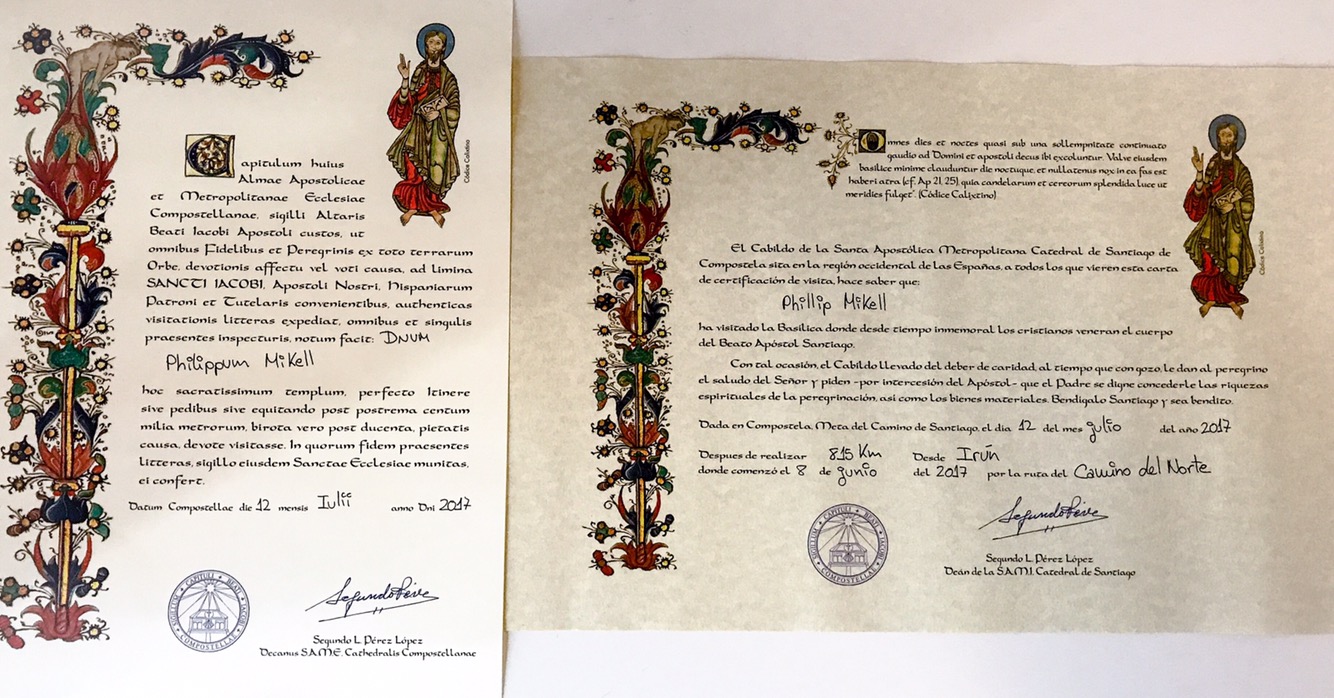 Capitulum huius
Almae Apostolicae
et Metropolitanae Ecclesiae
Compostellanae, sigilli Altaris
Beati Iacobi Apostoli custos, ut
omnibus Fidelibus et Peregrinis ex toto terrarum
Orbe, devotionis affectu vel voti causa, ad limina
SANCTI IACOBI, Apostoli Nostri, Hispaniarum
Patroni et Tutelaris convenientibus, authenticas
visitationis litteras expediat, omnibus et singulis
praesentes inspecturis, notum facit: DNUM
Philippum Mikell
hoc sacratissimum templum, perfecto Itinere
sive pedibus sive equitando post postrema centum
milia metrorum, birota vero post ducenta, pietatis
causa, devote visitasse. In quorum fidem praesentes
litteras, sigillo eiusdem Sanctae Ecclesiae munitas,
ei confert.
Datum Compostellae die 12 mensis Iulii anno Dni 2017
SIGILLUM CAPITULI BEATI IACOBI COMPOSTELLAE
Segundo L. Pérez López
Decanus S.A.M.E. Cathedralis Compostellanae
Códice Calixtino
Omnes dies et noctes quasi sub una sollempnitate continuato
gaudio ad Domini et apostoli decus ibi excoluntur. Valve eiusdem
basilice minime clauduntur die noctuque, et nullatenus nox in ea fas est
haberi atra (cf. Ap 21, 25), quia candelarum et cereorum splendida luce ut
meridies fulget". (Códice Calixtino)
El Cabildo de la Santa Apostólica Metropolitana Catedral de Santiago de
Compostela sita en la región occidental de las Españas, a todos los que vieren esta carta
de certificación de visita, hace saber que:
Phillip Mikell
ha visitado la Basílica donde desde tiempo inmemorial los cristianos veneran el cuerpo
del Beato Apóstol Santiago.
Con tal ocasión, el Cabildo llevado del deber de caridad, al tiempo que con gozo, le dan al peregrino
el saludo del Señor y piden -por intercesión del Apóstol- que el Padre se digne concederle las riquezas
espirituales de la peregrinación, asi como los bienes materiales. Bendígalo Santiago y sea bendito.
Dada en Compostela, Meta del Camino de Santiago, el día 12 del mes julio del año 2017
Despues de realizar 815 Km Desde Irún
donde comenzó el 8 de junio del 2017 por la ruta del Camino del Norte
SIGILLUM CAPITULI BEATI IACOBI COMPOSTELLAE
Segundo L. Pérez López
Deán de la S.A.M.I. Catedral de Santiago
Códice Calixtino